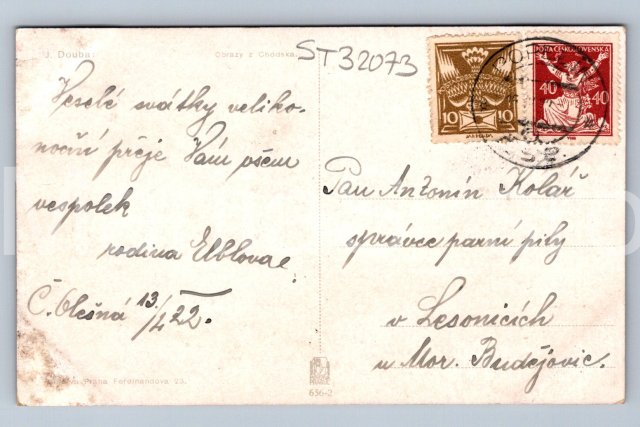 J. Douba:
Obrazy z Chodska
ST32073
Veselé svátky veliko-
noční přeje Vám všem
vespolek
rodina Elblova
Č. Olešná 13/4 22.
10 10
POŠTA ČESKOSLOVENSKÁ
40 40
Pan Antonín Kolář
správce parní pily
v Lesonicích
u Mor. Budějovic.
Praha Ferdinandova 23.
636-2